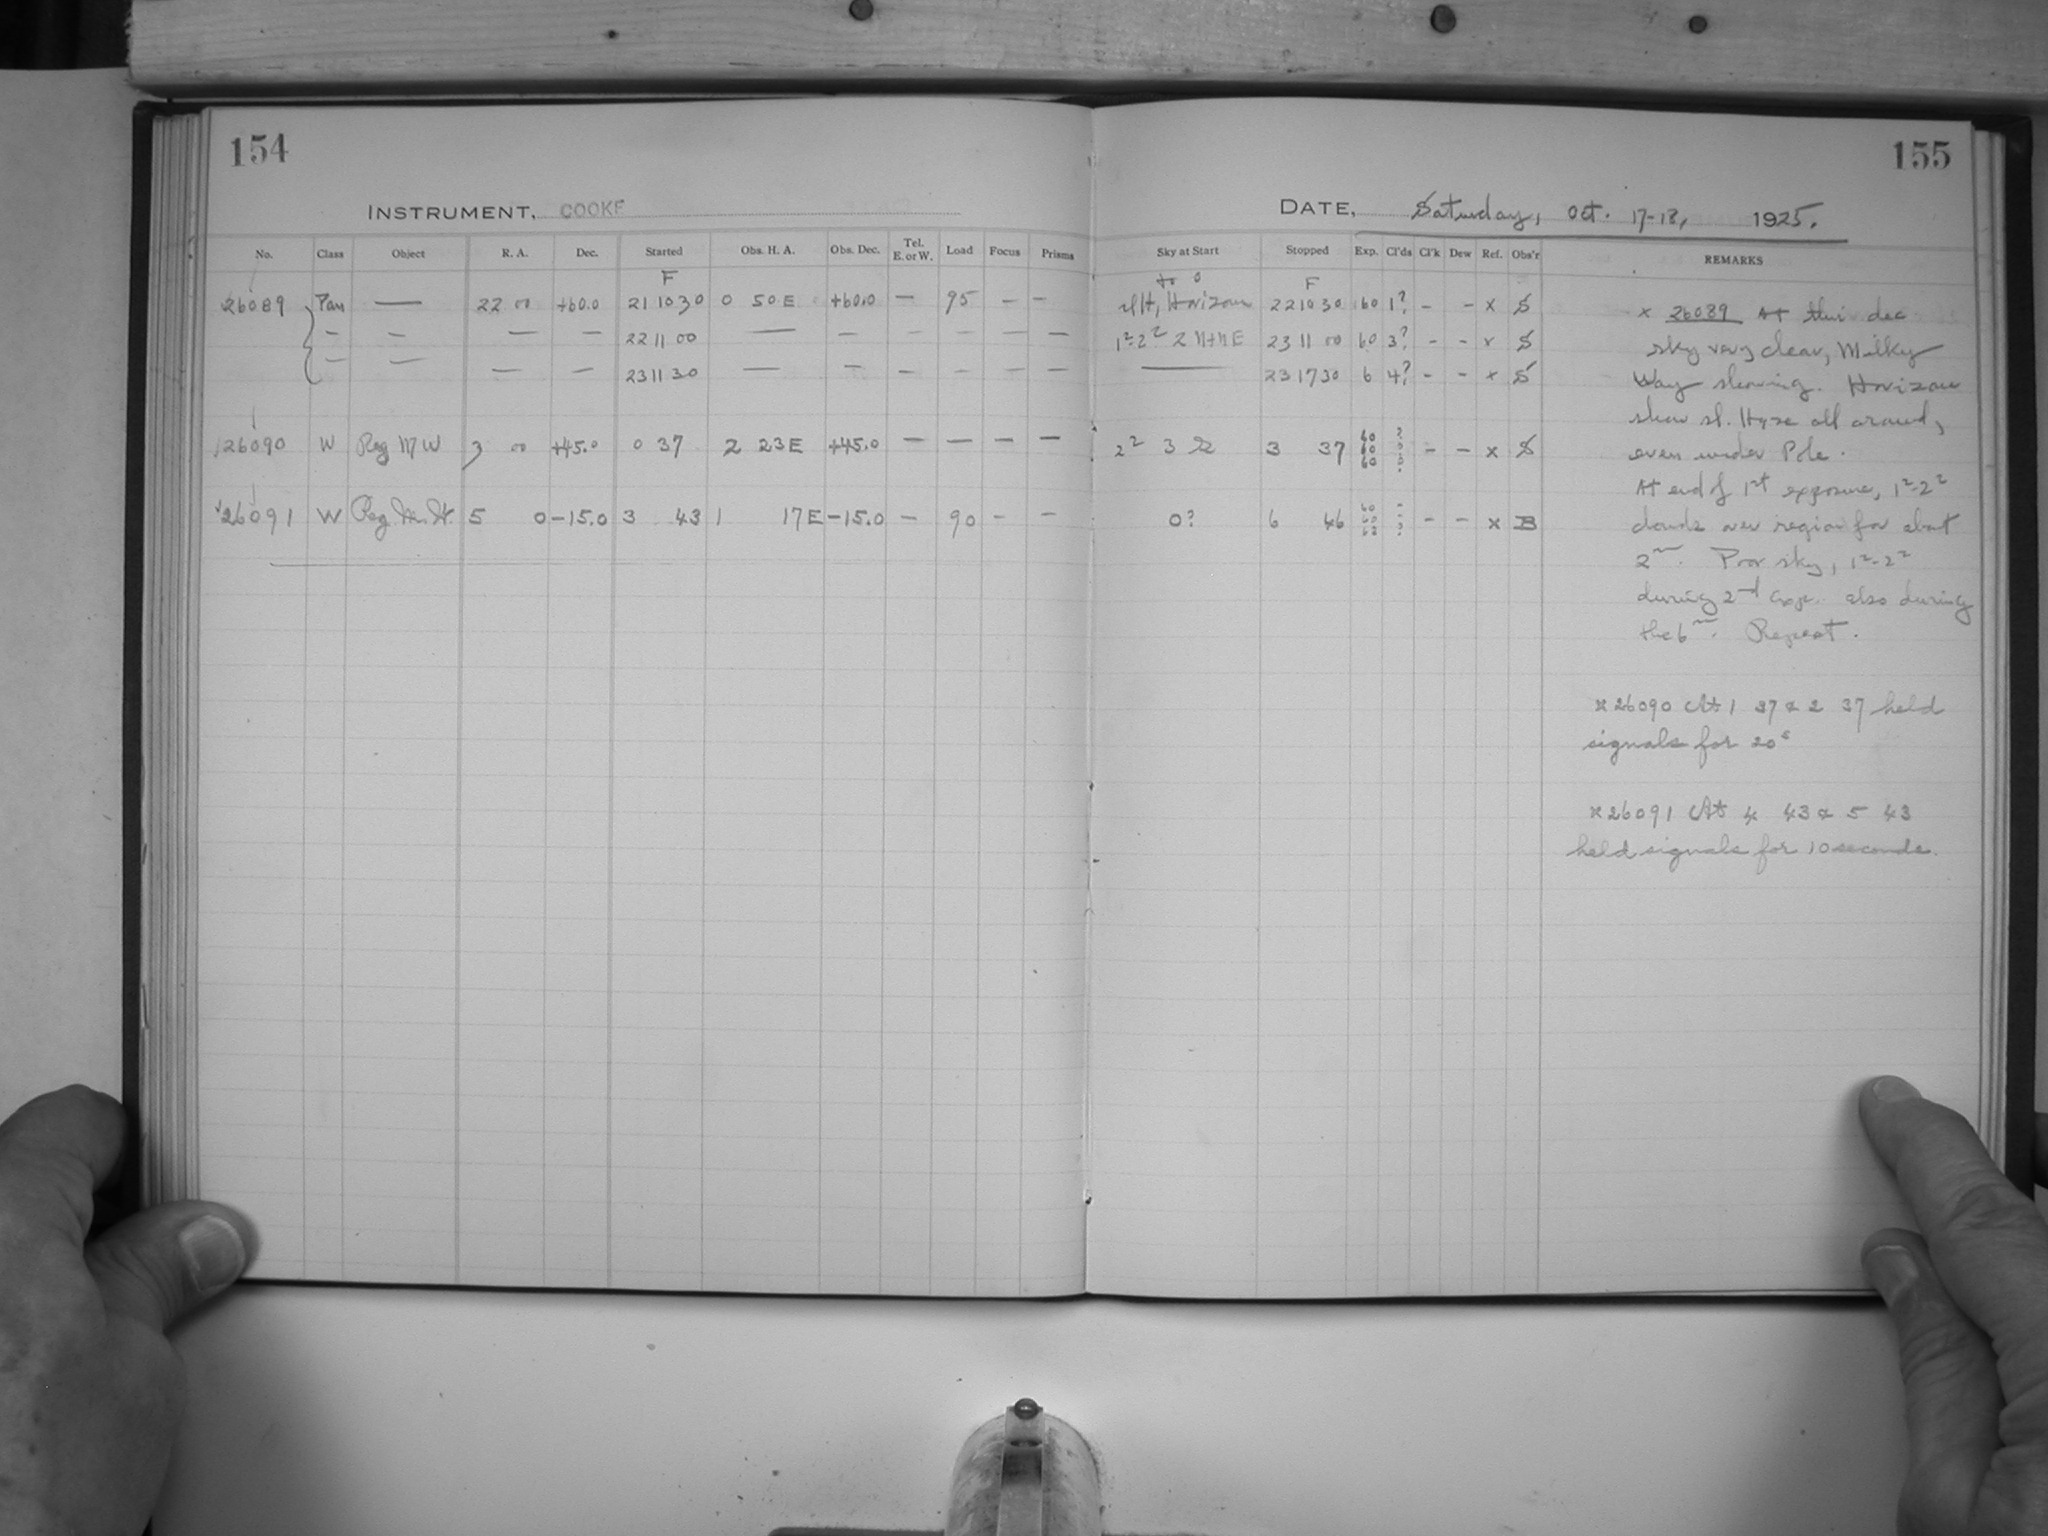 154
155
INSTRUMENT, COOKE
DATE, Saturday, Oct. 17-18, 1925.
No. Class Object R. A. Dec. Started Obs. H. A. Obs. Dec. Tel. E. or W. Load Focus Prisms
Sky at Start Stopped Exp. Cl'ds Cl'k Dew Ref. Obs'r REMARKS
F
F
26089 Pan — 22 00 +60.0 21 10 30 0 50 E +60.0 — 95 — —
Horizon 22 10 30 60 1? - - x S
— — — — 22 11 00 — — — — — —
1²-2² 23 11 00 60 3? - - x S
— — — — 23 11 30 — — — — — —
— 23 17 30 6 4? - - x S
26090 W Reg M W 3 00 +45.0 0 37 2 23 E +45.0 — — — —
2² 3 3 37 60 60 60 ? ? ? - - x S
26091 W Reg 5 0 -15.0 3 43 1 17 E -15.0 — 90 - -
0? 6 46 60 60 - - x B
x 26089 At this dec
sky very clear, Milky
Way showing. Horizon
show sl. Haze all around,
even under Pole.
At end of 1st exposure, 1²-2²
clouds over region for about
2ᵐ. Poor sky, 1²-2²
during 2nd exp. also during
the 6ᵐ. Repeat.
x 26090 At 1 37 & 2 37 held
signals for 20ˢ
x 26091 At 4 43 & 5 43
held signals for 10 seconds.